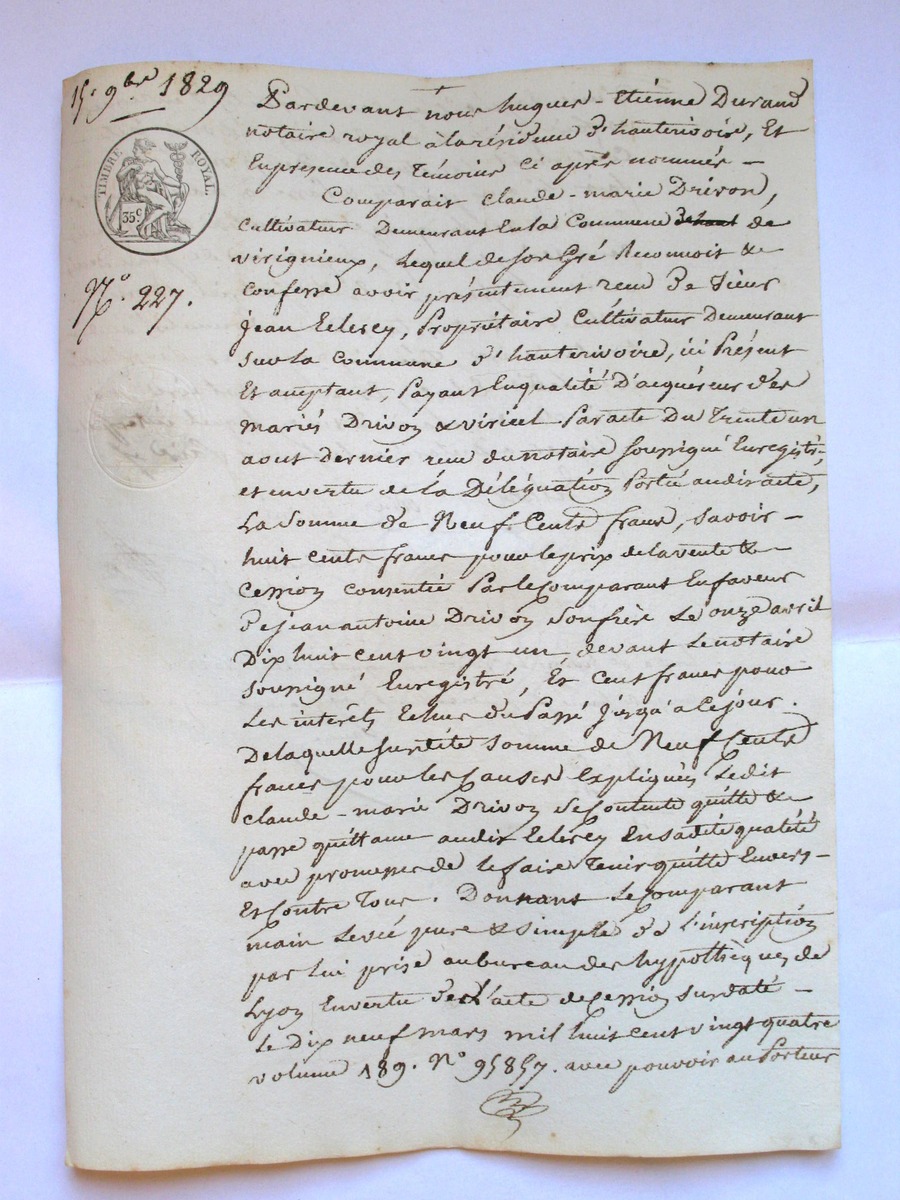 15. 9bre 1829
TIMBRE ROYAL.
35c
No. 227.
Pardevant nous hugues-Etiénne Durand
notaire royal à la résidence d'hauterivoire, Et
En presence des Témoins ci après nommés -
Comparait Claude-marie Drivon,
Cultivateur Demeurant En la Commune de
virignieux, Lequel de son Gré Reconnoit &
Confesse avoir présentement recu de sieur
Jean , Propriétaire Cultivateur Demeurant
sur la Commune d'hauterivoire, ici Présent
Et acceptant, Payant En qualité D'acquéreur des
mariés Drivon & viricel Par acte Du Trente un
aout Dernier recu du notaire soussigné Enregistré,
et en vertu de la Déléguation Portée audit acte,
La Somme de Neuf Cents francs, savoir -
huit cents francs pour le prix de la vente &
Cession Consentie Par le Comparant En faveur
de jean antoine Drivon son frère Le onze avril
Dix huit cent vingt un devant Le notaire
soussigné Enregistré, Et Cent francs pour
Les interêts Echus du Passé jusqu'a ce jour.
De laquelle susdite somme de Neuf Cents
francs pour les Causes Expliquées Ledit
Claude-marie Drivon se Contente quitte &
passe quittance audit En sa dite qualité
avec promesse de le faire Tenir quitte Envers -
Et Contre Tous. Donnant Le Comparant
main Levée pure & simple de L'inscription
par lui prise au bureau des hypothèques de
Lyon En vertu de l'acte de Cession sus daté -
Le Dix neuf mars mil huit cent vingt quatre
volume 189. No 95857. avec pouvoir au Porteur